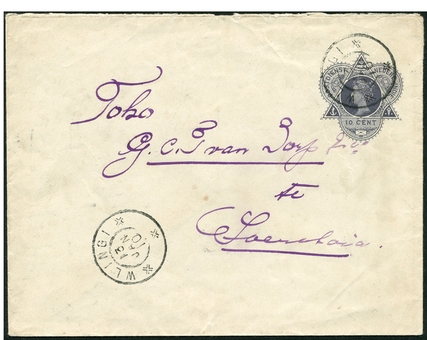 Toko
G. C. T van Dorp & Co
te
Soerabaia.
10 CENT
WLINGI